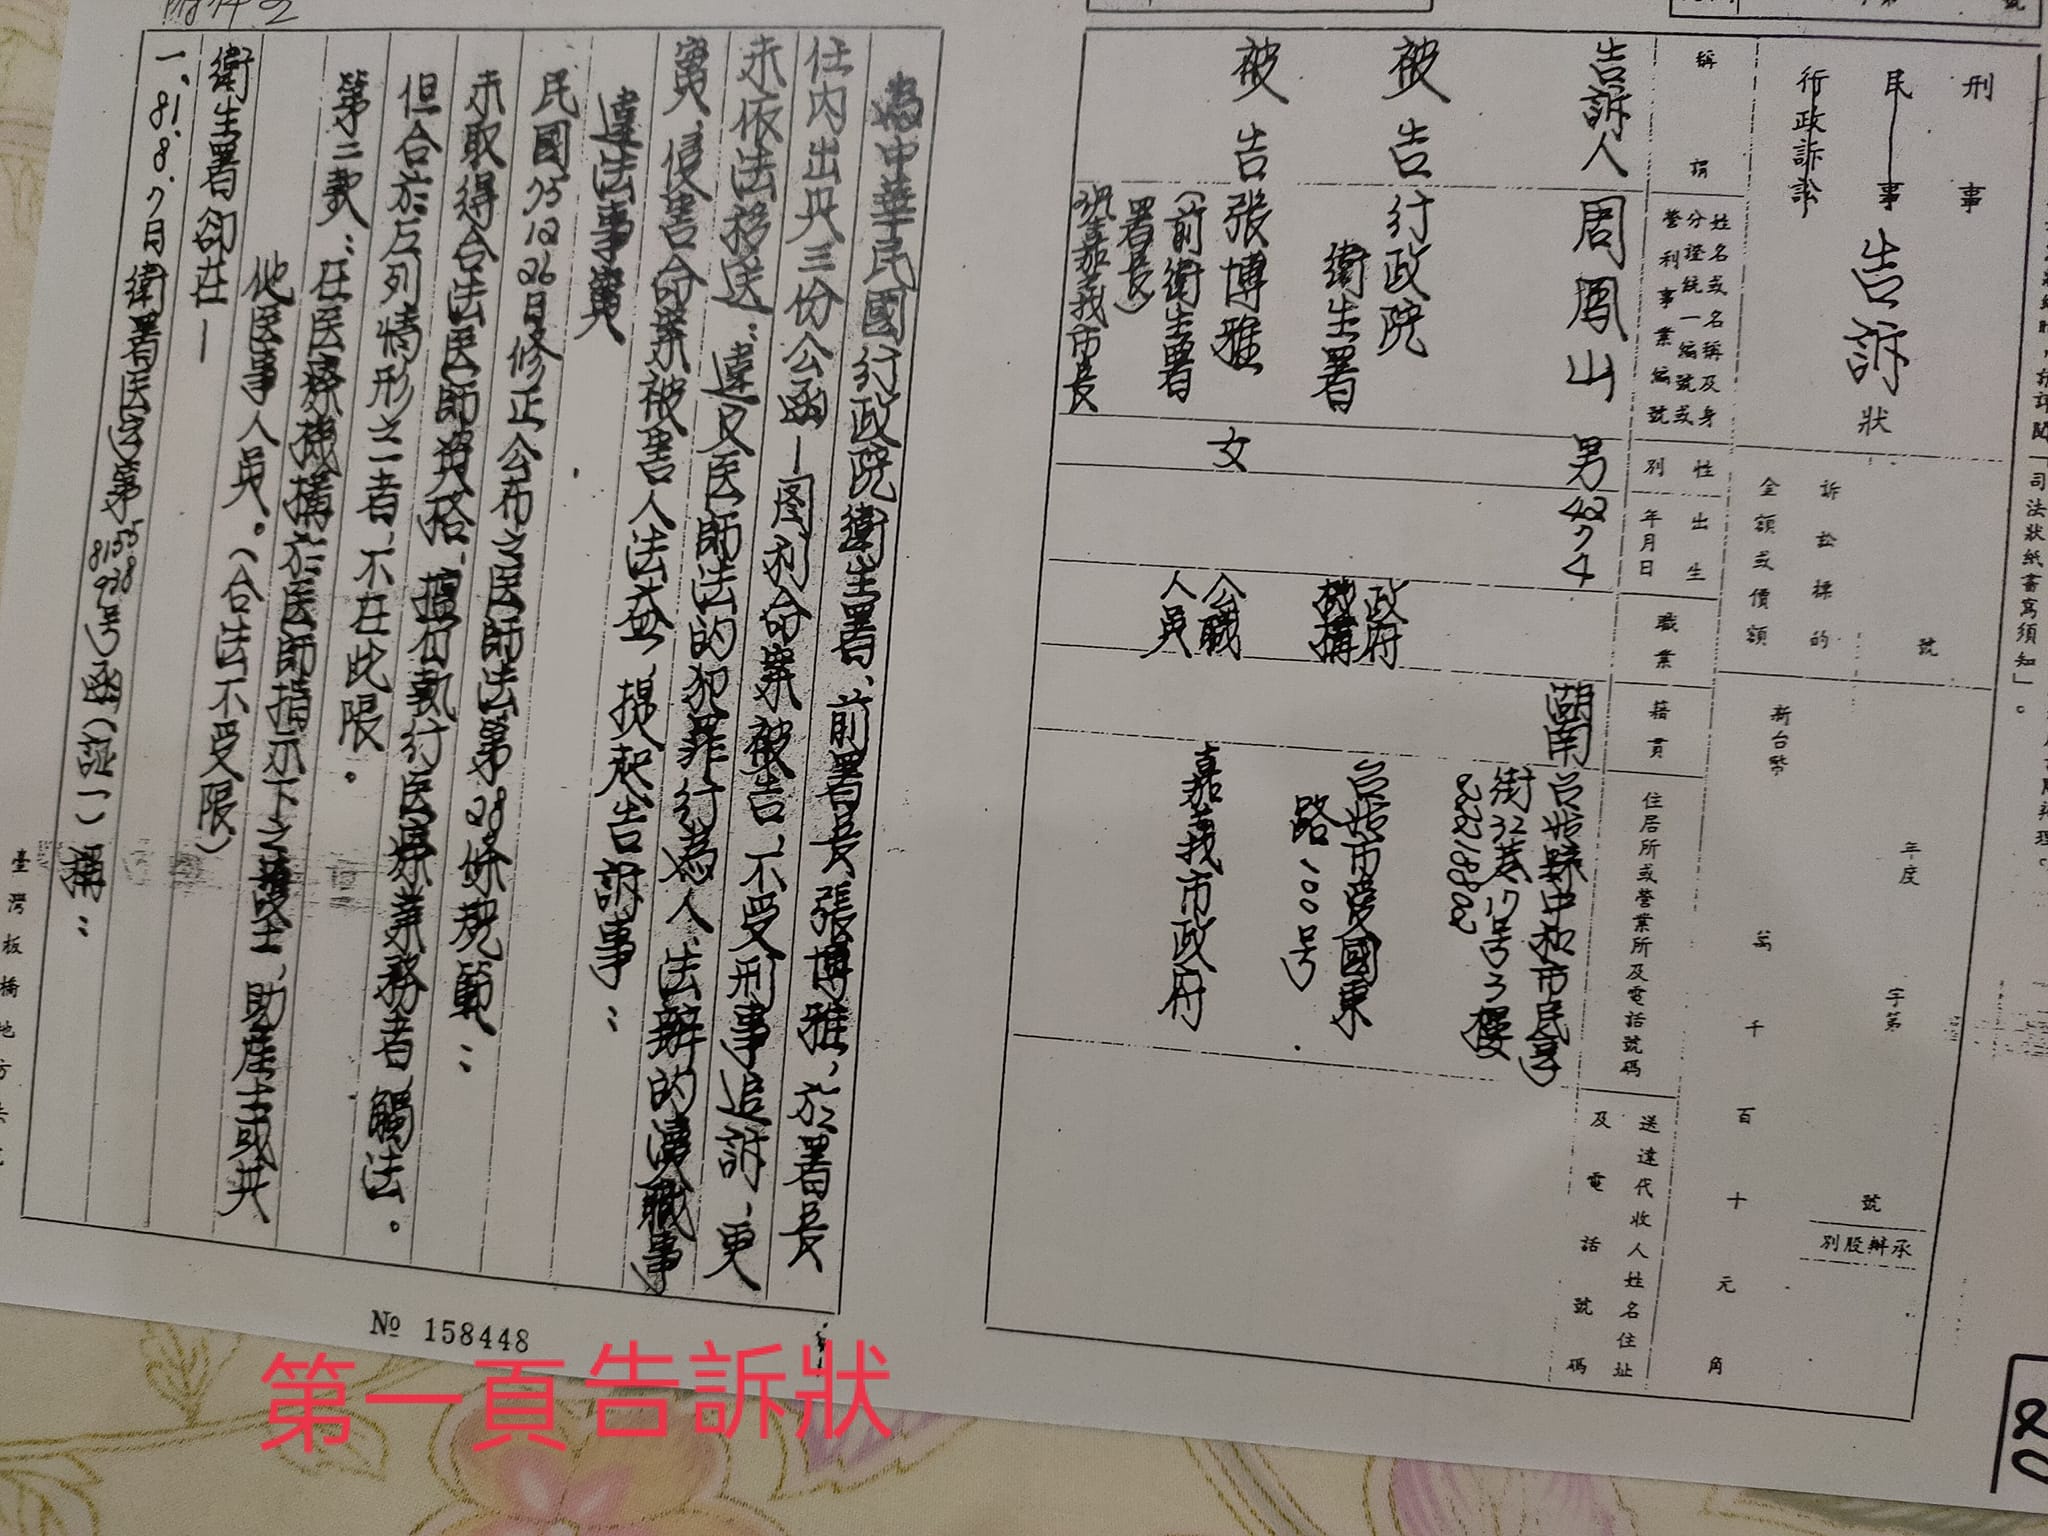 附件2
刑事
民事
行政訴訟
告訴狀
號
年度
字第
號
承辦股別
訴訟標的
金額或價額
新台幣
萬
千
百
十
元
角
稱謂
姓名或名稱及身
分證統一編號或
營利事業編號
性別
出生
年月日
職業
籍貫
住居所或營業所及電話號碼
送達代收人姓名住址
及電話號碼
告訴人
周
山
男
42
7
4
湖南
台北縣中和市民享
街32巷17号3樓
22218802
被告
行政院
衛生署
政府
機構
台北市愛國東
路100号
被告
張博雅
(前衛生署
署長)
現嘉義市長
女
公職
人員
嘉義市政府
為中華民國行政院衛生署、前署長張博雅,於署長
任內出具三份公函-图利合案被告、不受刑事追訴,更
未依法移送:違反医師法的犯罪行為人、法辦的瀆職事
實、侵害合案被害人法益,提起告訴事:
違法事實
民國75 12 26日修正公布之医師法第28條規範:
未取得合法医師資格,擅自執行医療業務者觸法。
但合於左列情形之一者,不在此限。
第二款:在医療機構於医師指示下之護士、助產士或其
他医事人員。(合法不受限)
衛生署卻在-
一、81.8.7月衛署医字第8155938号函(証一)稱:
№ 158448
司法狀紙書寫須知」。
第一頁告訴狀